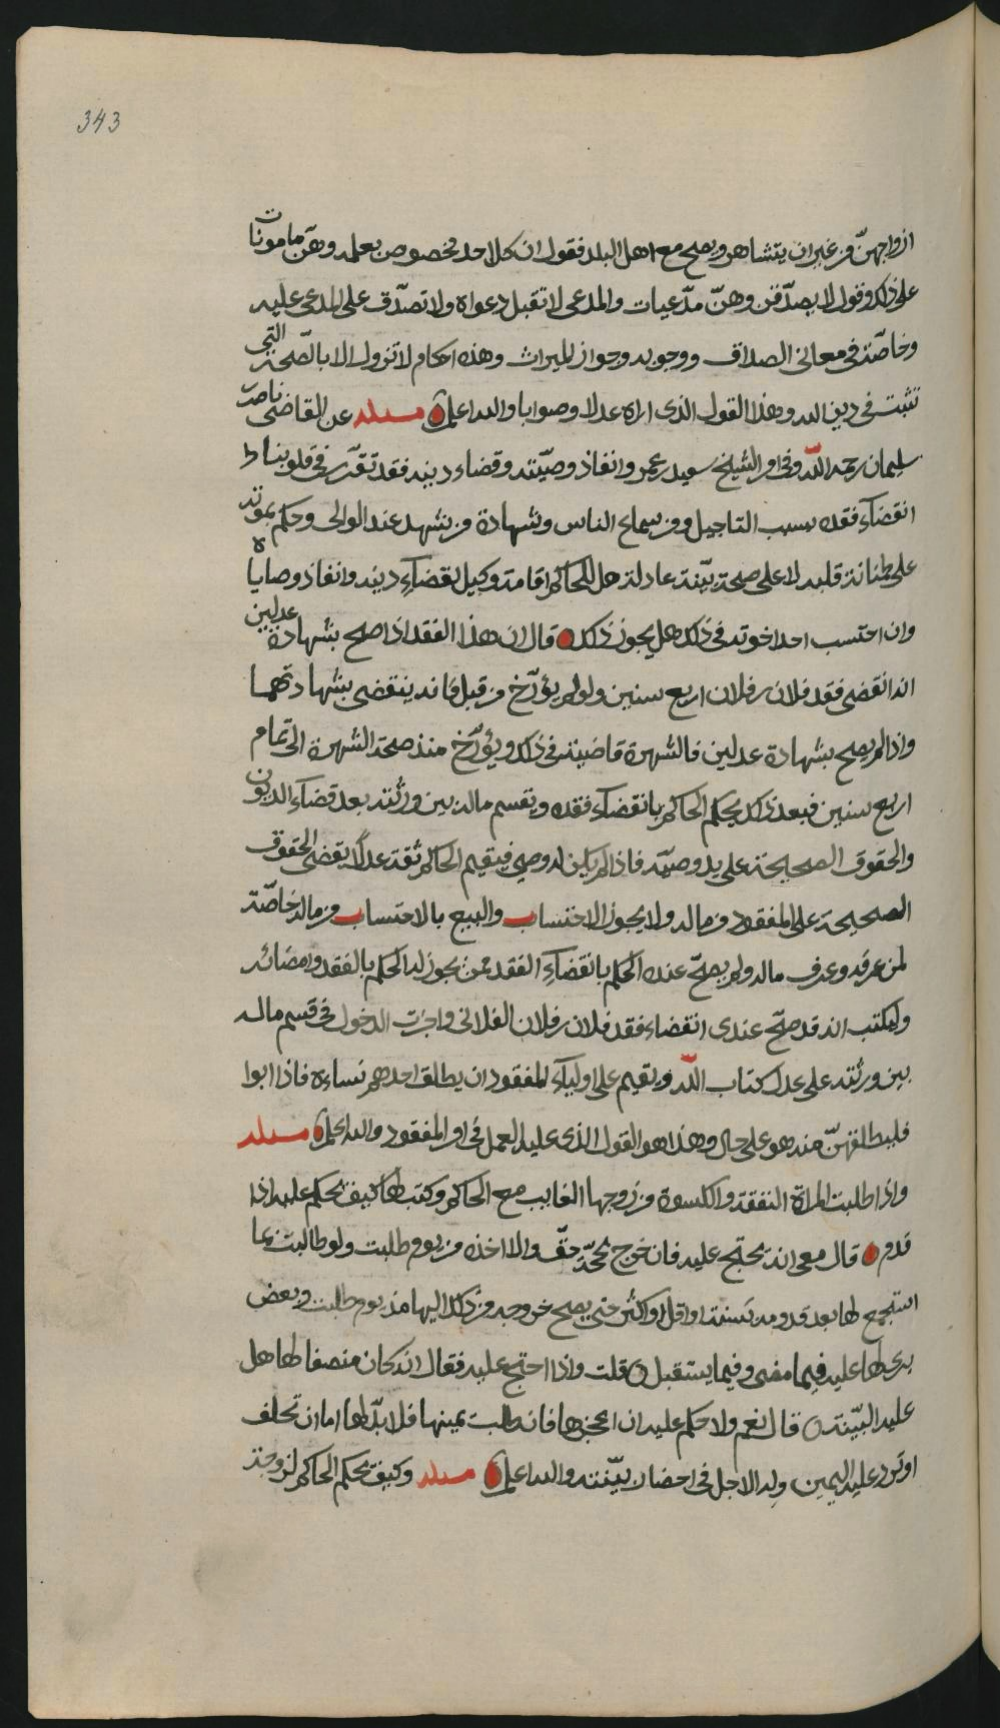 343
ازواجهنّ من غير ان يتشاهر ويصح مع اهل البلد فقول ان كلا احد مخصوص بعلمه وهنّ مامونات
على ذلك وقول لا يصدّقن وهنّ مدّعيات والمدعى لا تقبل دعواه ولا تصدّق على المدعى عليه
وخاصّة فى معانى الصداق ووجوبه وجواز الميراث وهذه احكام لا تزول الا بالصّحة التى
تثبت فى دين الله وهذا القول الذى اراه عدلا وصوابا والله اعلم مسئلة عن القاضى ناصر بن
سليمان رحمه اللّه وفى امر الشيخ سعيد بن عمر وانفاذ وصيّته وقضاء دينه فقد تقرّر فى قلوبنا
انقضاء فقده بسبب التاجيل ومن سماع الناس وشهادة من يشهد عند الوالى وحكم بموته
على طنانة قلبه لا على صحة بيّنة عادلة هل للحاكم اقامة وكيل لقضاء دينه وانفاذ وصاياه
وان احتسب احد اخوته فى ذلك هل يجوز ذلك قال ان هذا الفقد اذا صح بشهادة عدلين
انه انقضى فقد فلان بن فلان اربع سنين ولو لم يؤرّخ من قبل فانه ينقضى بشهادتهما
واذا لم يصح بشهادة عدلين فالشهرة قاضية فى ذلك ويؤرّخ منذ صحة الشهرة الى تمام
اربع سنين فبعد ذلك يحكم الحاكم بانقضاء فقده ويقسم ماله بين ورثته بعد قضاء الديون
والحقوق الصحيحة على يد وصيّه فاذا لم يكن له وصى فيقيم الحاكم ثقة عدلًا يقضى الحقوق
الصحيحة على المفقود من ماله ولا يجوز الاحتساب والبيع بالاحتساب من ماله خاصّة
لمن عرفه وعرف ماله ولم يصحّ عنده الحكم بانقضاء الفقد ممن يجوز له الحكم بالفقد وامضائه
وليكتب انه قد صحّ عندى انقضاء فقد فلان بن فلان الفلانى واجزت الدخول فى قسم ماله
بين ورثته على عدل كتاب اللّه ويقيم على اولياء المفقود ان يطلق احدهم نساءه فاذا ابوا
فليطلقهنّ منه هو على حال وهذا هو القول الذى عليه العمل فى امر المفقود والله اعلم مسئلة
واذا طلبت المراة النفقة والكسوة من زوجها الغايب مع الحاكم وكتب لها كيف يحكم عليه اذا
قدم قال معى انه يحتج عليه فان خرج بحجّة حقّ والا اخذه من يوم طلبت ولو طالبت بما
استجمع لها بعد قدومه بسنة او اقل او اكثر حتى يصح خروجه من ذلك اليها منذ يوم طلبت وبعض
يرى لها عليه فيما مضى وفيما يستقبل قلت واذا احتج عليه فقال انه كان منصفا لها هل
عليه البيّنة قال نعم ولا حكم عليه ان اعجزها فان طلبت يمينها فلا بدّ لها اما ان تحلف
او ترد عليه اليمين وله الاجل فى احضار بيّنته والله اعلم مسئلة وكيف يحكم الحاكم لزوجة